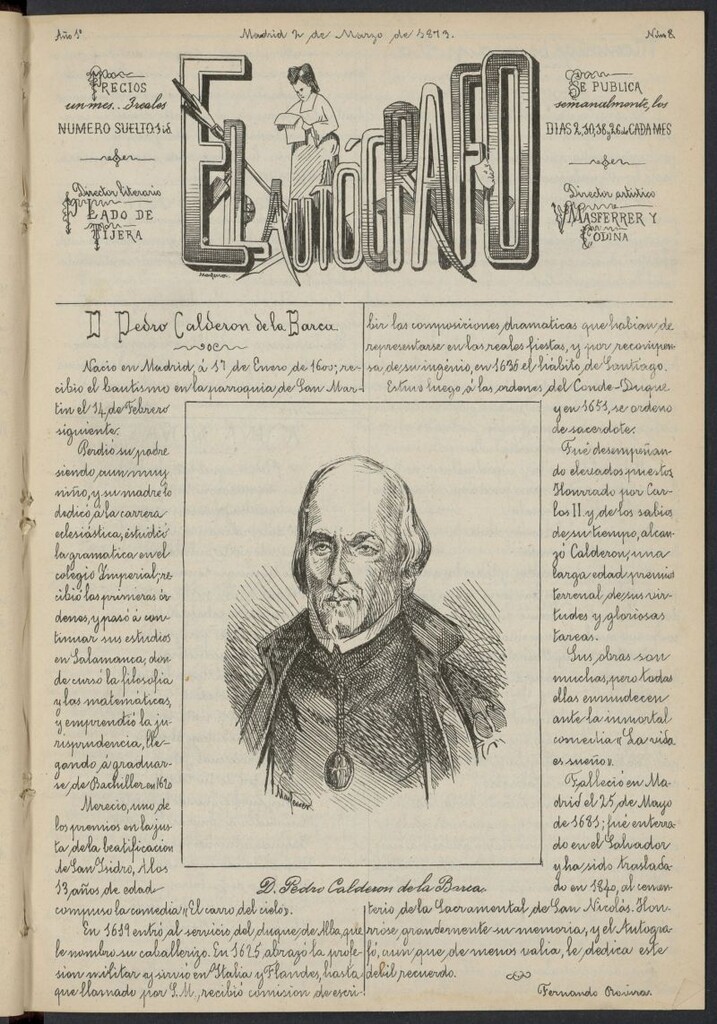 Año 1º
Madrid 2 de Marzo de 1879.
Núm 8.
PRECIOS
un mes... 3 reales
NUMERO SUELTO 1 id.
Director literario
PELADO DE
TIJERA
EL AUTÓGRAFO
SE PUBLICA
semanalmente, los
DIAS 2, 10, 18, 26 de CADA MES
Director artístico
MASFERRER Y
CODINA
D Pedro Calderon de la Barca
Nació en Madrid, á 17 de Enero de 1600; re-
cibio el bautismo en la parroquia de San Mar-
tin el 14 de Febrero
siguiente.
Perdió su padre
siendo aun muy
niño, y su madre lo
dedicó á la carrera
eclesiástica, estudió
la gramatica en el
colegio Imperial, re-
cibió las primeras ór-
denes, y pasó á con-
tinuar sus estudios
en Salamanca, don-
de cursó la filosofia
y las matemáticas,
y emprendió la ju-
risprudencia, lle-
gando á graduar-
se de Bachiller en 1620
Mereció, uno de
los premios en la jus-
ta de la beatificacion
de San Isidro, á los
13 años de edad
compuso la comedia «El carro del cielo».
En 1619 entró al servicio del duque de Alba, que
le nombró su caballerizo. En 1625 abrazó la profe-
sion militar y sirvió en Italia y Flandes, hasta
que llamado por S.M., recibió comision de escri-
bir las composiciones dramaticas que habian de
representarse en las reales fiestas, y por recompen-
sa de su ingénio, en 1636 el hábito de Santiago.
Estuvo luego á las ordenes del Conde-Duque
y en 1651, se ordeno
de sacerdote.
Fué desempeñan-
do elevados puestos
Honrrado por Car-
los II y de los sabios
de su tiempo, alcan-
zó Calderon, una
larga edad premio
terrenal de sus vir-
tudes y gloriosas
tareas.
Sus obras son
muchas, pero todas
ellas enmudecen
ante la inmortal
comedia «La vida
es sueño».
Falleció en Ma-
drid el 25 de Mayo
de 1681; fué enterra-
do en el Salvador
y ha sido traslada-
do en 1840, al cemen-
terio de la Sacramental de San Nicolás. Hon-
rróse grandemente su memoria, y el Autogra-
fo, aun que de menos valia, le dedica este
debil recuerdo.
Fernando Rovira.
Masferrer
D. Pedro Calderon de la Barca